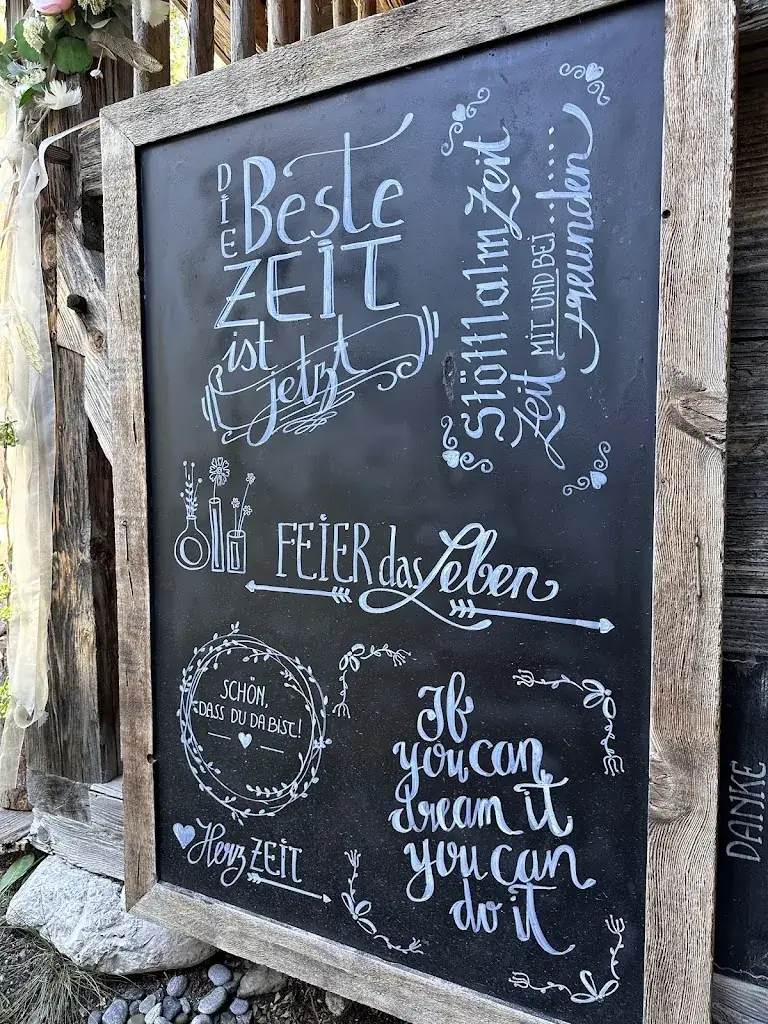 DIE
Beste
ZEIT
ist
jetzt
StöttlalmZeit
Zeit MIT UND BEI.......
freunden
FEIER das Leben
SCHÖN,
DASS DU DA BIST!
HerzZEIT
If
you can
dream it
you can
do it
DANKE